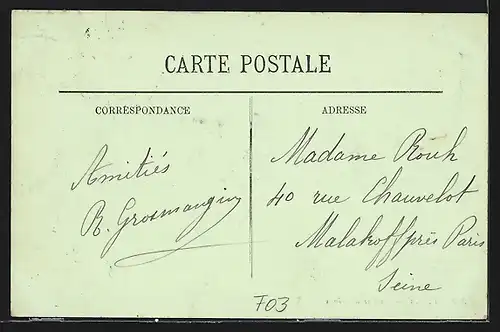 CARTE POSTALE
CORRESPONDANCE
ADRESSE
Amitiés
R. Grosmangin
Madame Rouh
40 rue Chauvelot
Malakoff près Paris
Seine
F03